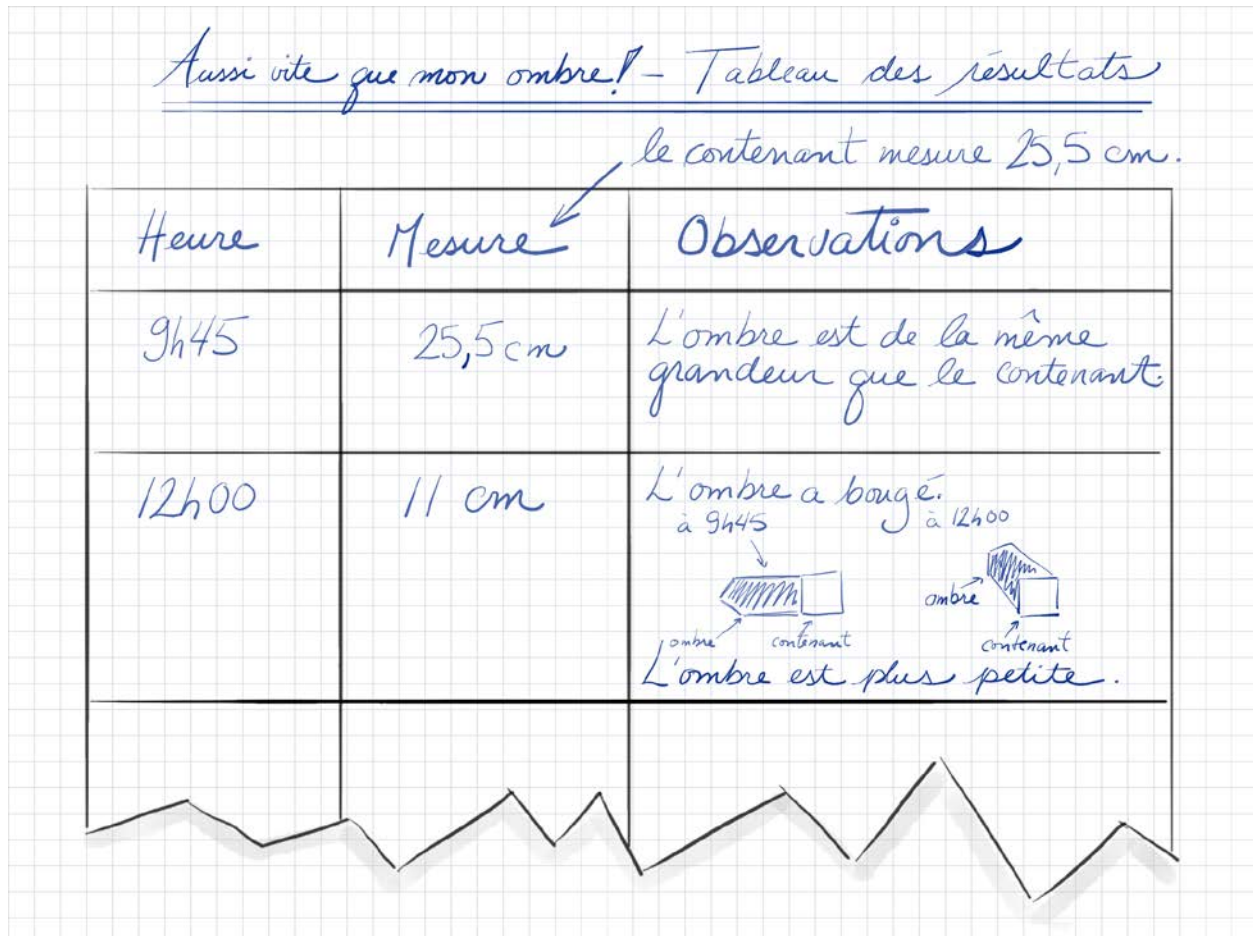 Aussi vite que mon ombre! - Tableau des résultats
le contenant mesure 25,5 cm.
Heure
Mesure
Observations
9h45
25,5 cm
L'ombre est de la même
grandeur que le contenant.
12h00
11 cm
L'ombre a bougé.
à 9h45
à 12h00
ombre
ombre
contenant
contenant
L'ombre est plus petite.